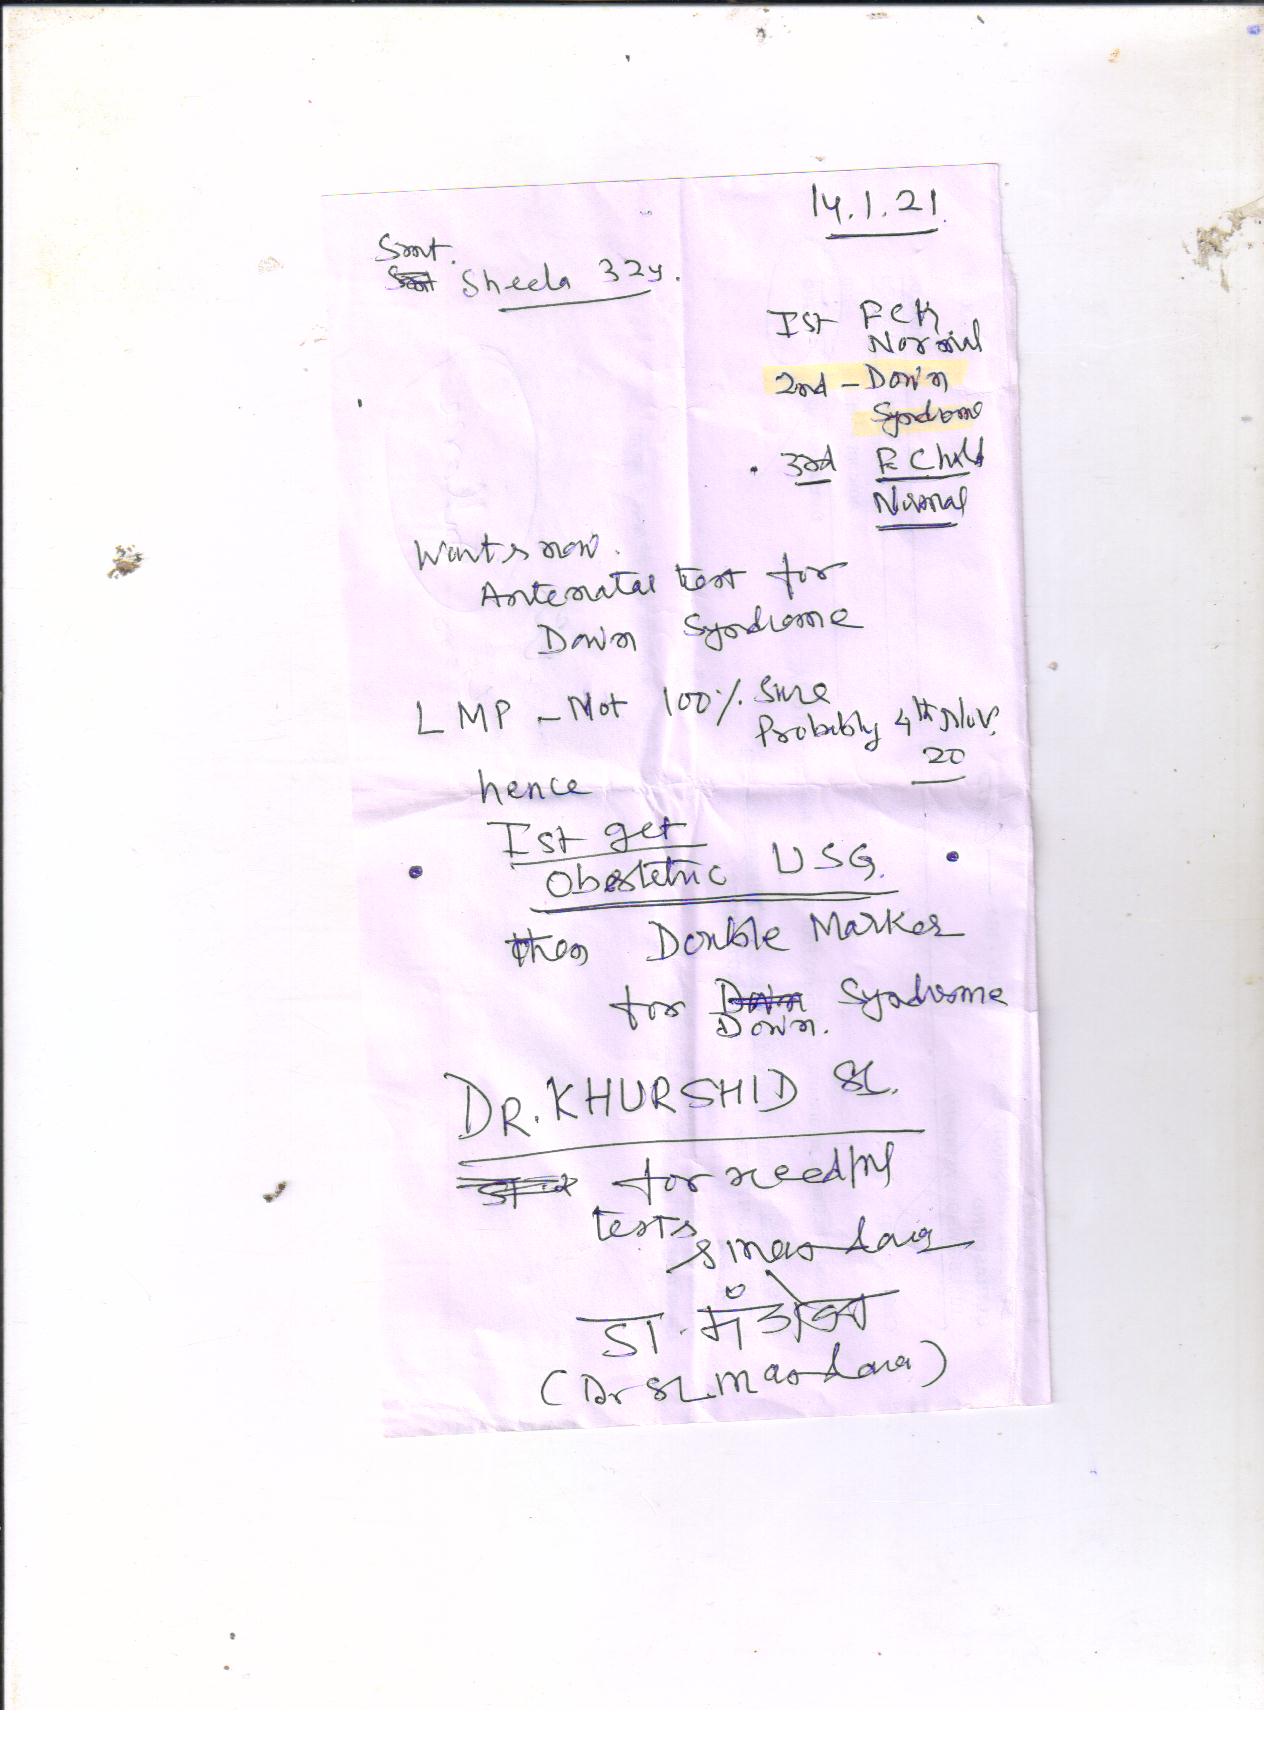 14.1.21
Smt.
Sheela 32y.
Ist F Ch
Normal
2nd - Down
Syndrome
3rd F Child
Normal
Wants now.
Antenatal test for
Down Syndrome
LMP - Not 100% Sure
Probably 4th Nov.
20
hence
Ist get
Obstetric USG.
then Double Marker
for Down Syndrome
Down.
DR. KHURSHID
for needful
tests
डा. मंडोवरा
(Dr SL Mandora)